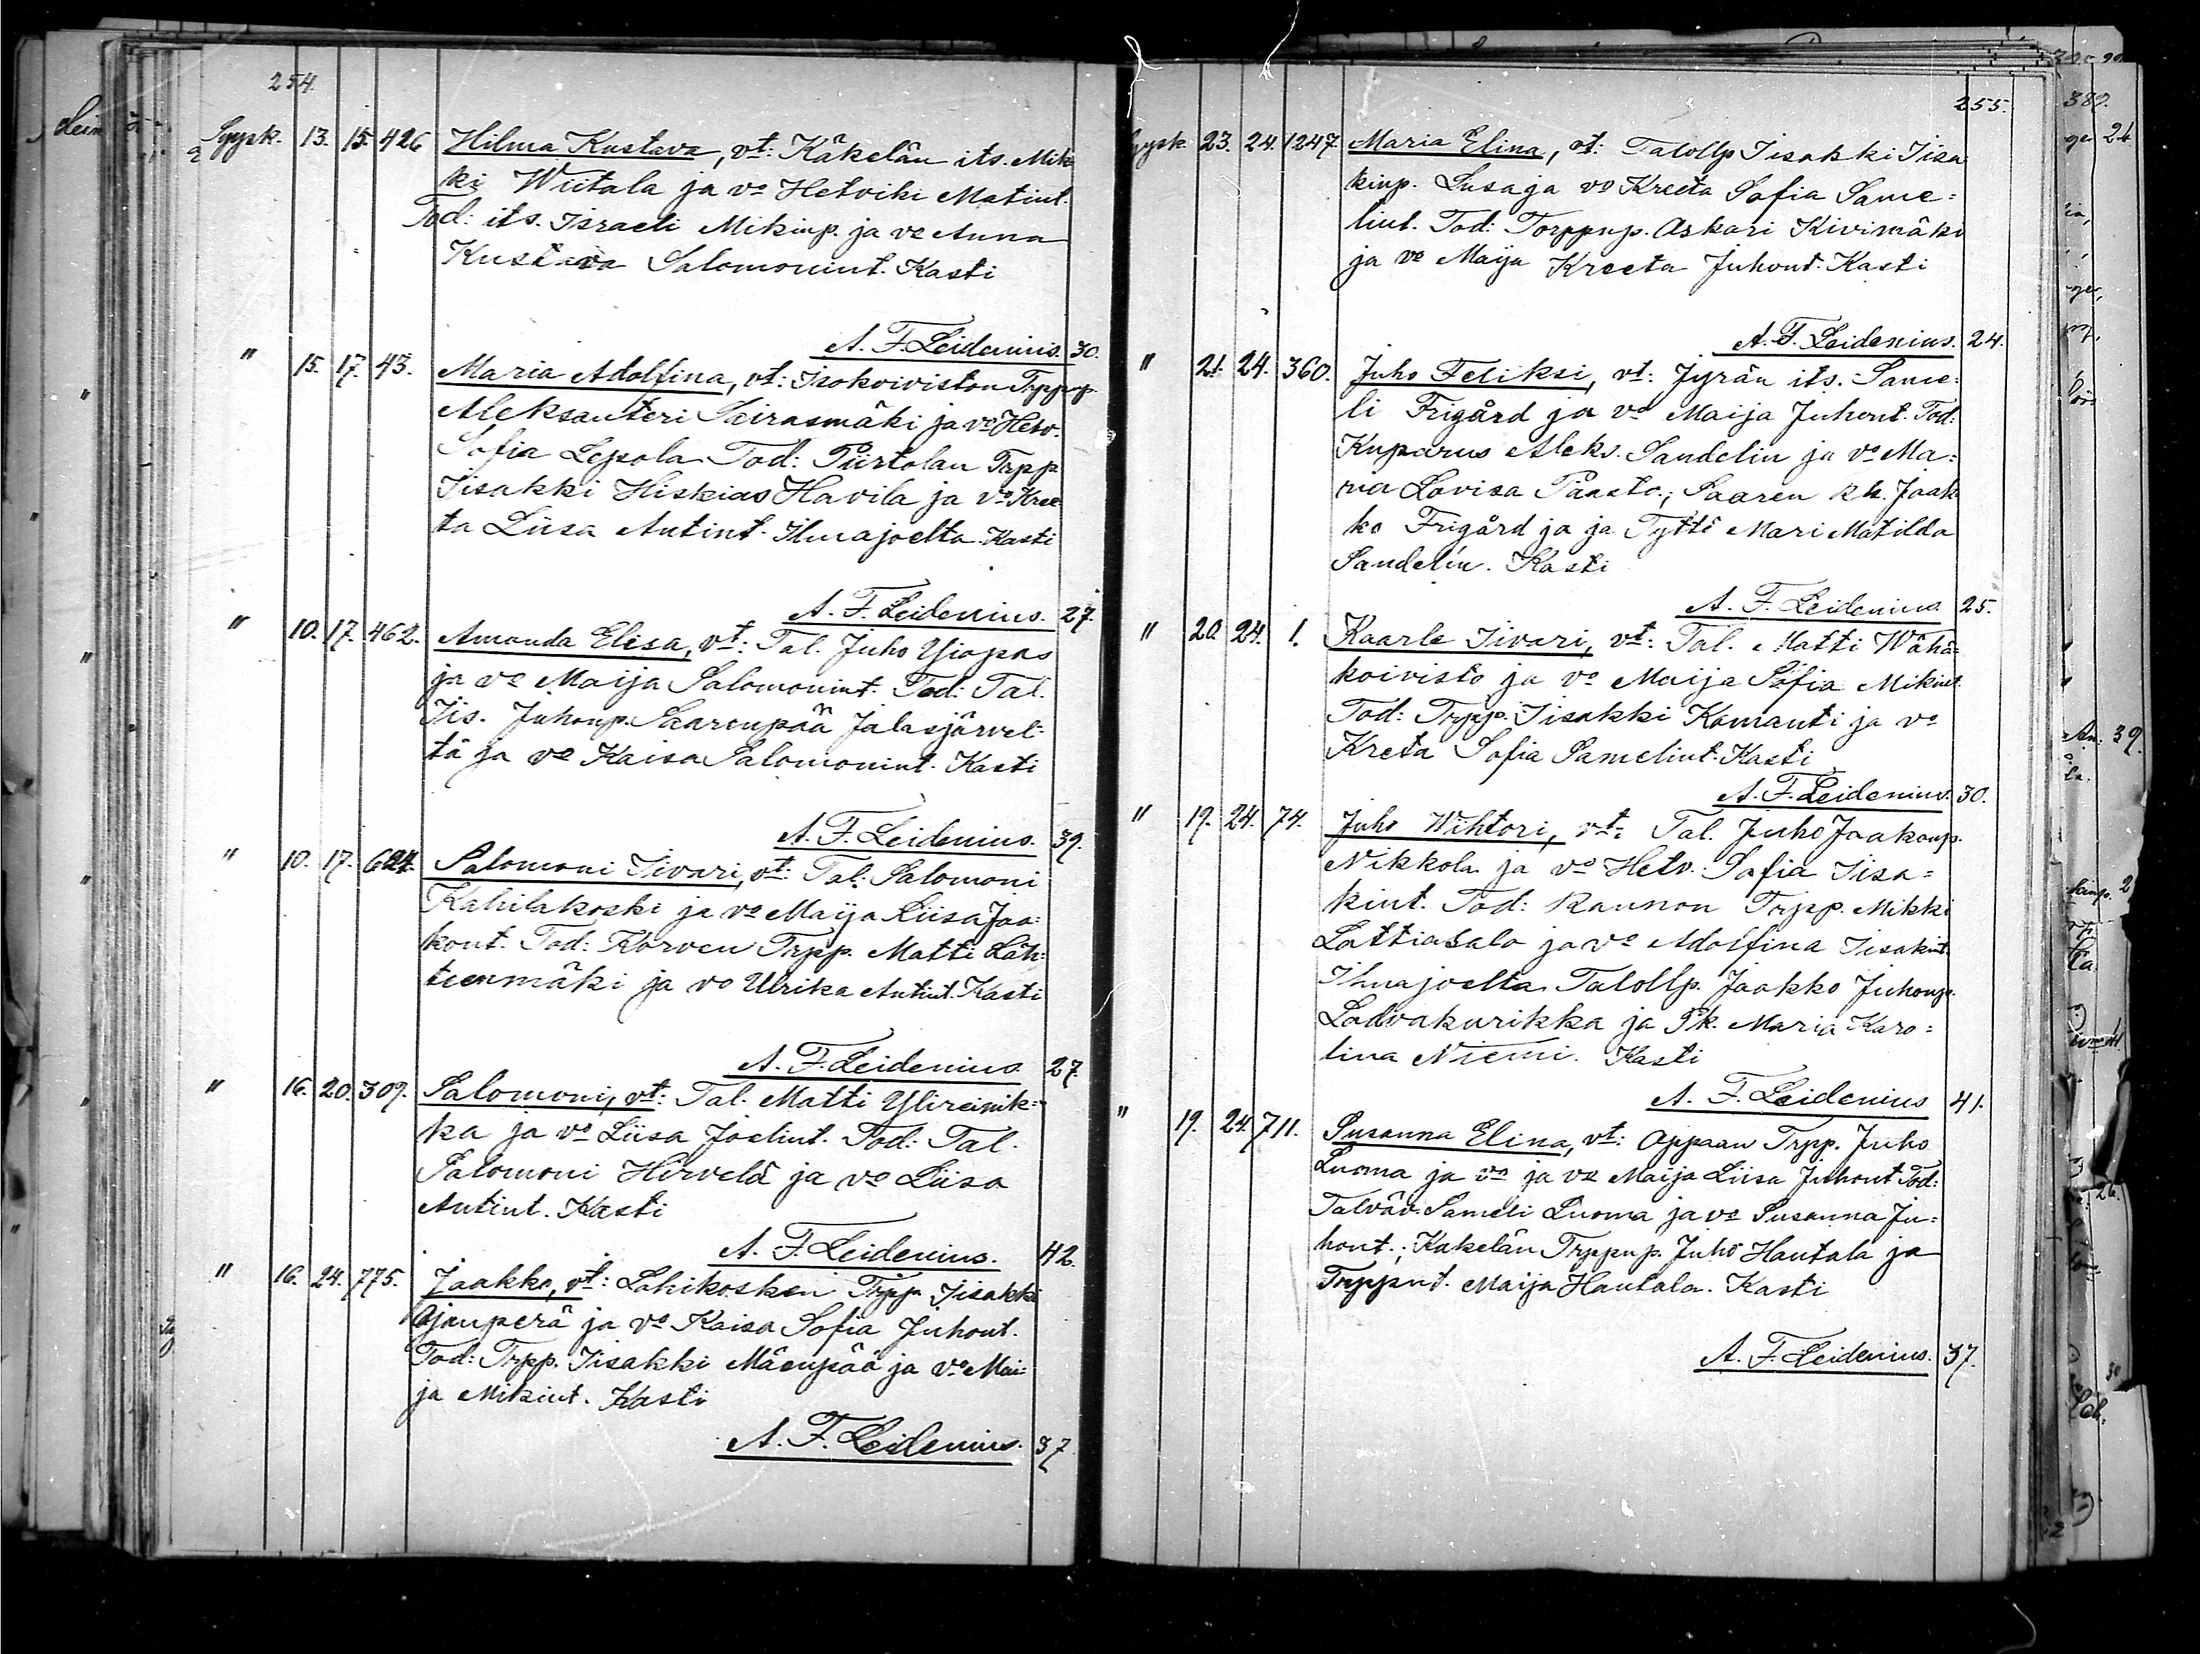 254.
Syysk. 13. 15. 426 Hilma Kustava, vt: Käkelän its. Mik
ki Wiitala ja vo Hetviki Matint.
Tod: its. Israeli Mikinp. ja vo Anna
Kustava Salomonint. Kasti
A. F. Leidenius. 30.
" 15. 17. 43. Maria Adolfina, vt: Isokoiviston Trppnp.
Aleksanteri Seirasmäki ja vo Hetv.
Sofia Lepola Tod: Piirtolan Trpp
Iisakki Hiskias Havila ja vo Kree
ta Liisa Antint. Ilmajoelta. Kasti
A. F. Leidenius. 27.
" 10. 17. 462. Amanda Elisa, vt: Tal. Juho Yliopas
ja vo Maija Salomonint. Tod: Tal.
Iis. Juhonp. Saarenpää Jalasjärvel-
tä ja vo Kaisa Salomonint. Kasti
A. F. Leidenius. 39.
" 10. 17. 624. Salomoni Iivari, vt: Tal: Salomoni
Kahilakoski ja vo Maija Liisa Jaa:
kont. Tod: Korven Trpp. Matti Läh:
teenmäki ja vo Ulrika Antint. Kasti
A. F. Leidenius 27.
" 16. 20. 309. Salomoni, vt: Tal. Matti Ylireinik:
ka ja vo Liisa Joelint. Tod: Tal.
Salomoni Hirvelä ja vo Liisa
Antint. Kasti
A. F. Leidenius. 42.
" 16. 24. 775. Jaakko, vt: Lahikosken Trpp. Iisakki
Ojanperä ja vo Kaisa Sofia Juhont.
Tod: Trpp. Iisakki Mäenpää ja vo Mai:
ja Mikint. Kasti
A. F. Leidenius. 37
255.
Syysk. 23. 24. 1247. Maria Elina, vt: Talollp Iisakki Iisa
kinp. Lusa ja vo Kreeta Sofia Same:
lint. Tod: Torppnp. Oskari Kivimäki
ja vo Maija Kreeta Juhont. Kasti
A. F. Leidenius. 24.
" 21. 24. 360. Juho Feliksi, vt: Jyrän its. Same:
li Frigård ja vo Maija Juhont. Tod:
Kuparus Aleks. Sandelin ja vo Ma:
ria Lovisa Paasto.; Saaren Rh. Jaak
ko Frigård ja ja Tyttö Mari Matilda
Sandelin. Kasti
A. F. Leidenius. 25.
" 20. 24. 1. Kaarle Iivari, vt: Tal. Matti Wähä=
koivisto ja vo Maija Sofia Mikint.
Tod: Trpp. Iisakki Kamanti ja vo
Kreta Sofia Samelint. Kasti
A. F. Leidenius. 30.
" 19. 24. 74. Juho Wihtori, vt: Tal. Juho Jaakonp.
Nikkola ja vo Hetv. Sofia Iisa=
kint. Tod: Rannon Trpp. Mikki
Lattiasalo ja vo Adolfina Iisakint.
Ilmajoelta Talollp. Jaakko Juhonp.
Ladvakurikka ja Pk. Maria Karo=
lina Niemi. Kasti
A. F. Leidenius 41.
" 19. 24. 711. Susanna Elina, vt: Oppaan Trpp. Juho
Luoma ja vo ja vo Maija Liisa Juhont Tod:
Talväv. Sameli Luoma ja vo Susanna Ju:
hont.; Kakelän Trppnp. Juho Hautala ja
Trppnt. Maija Hautala. Kasti
A. F. Leidenius. 37.